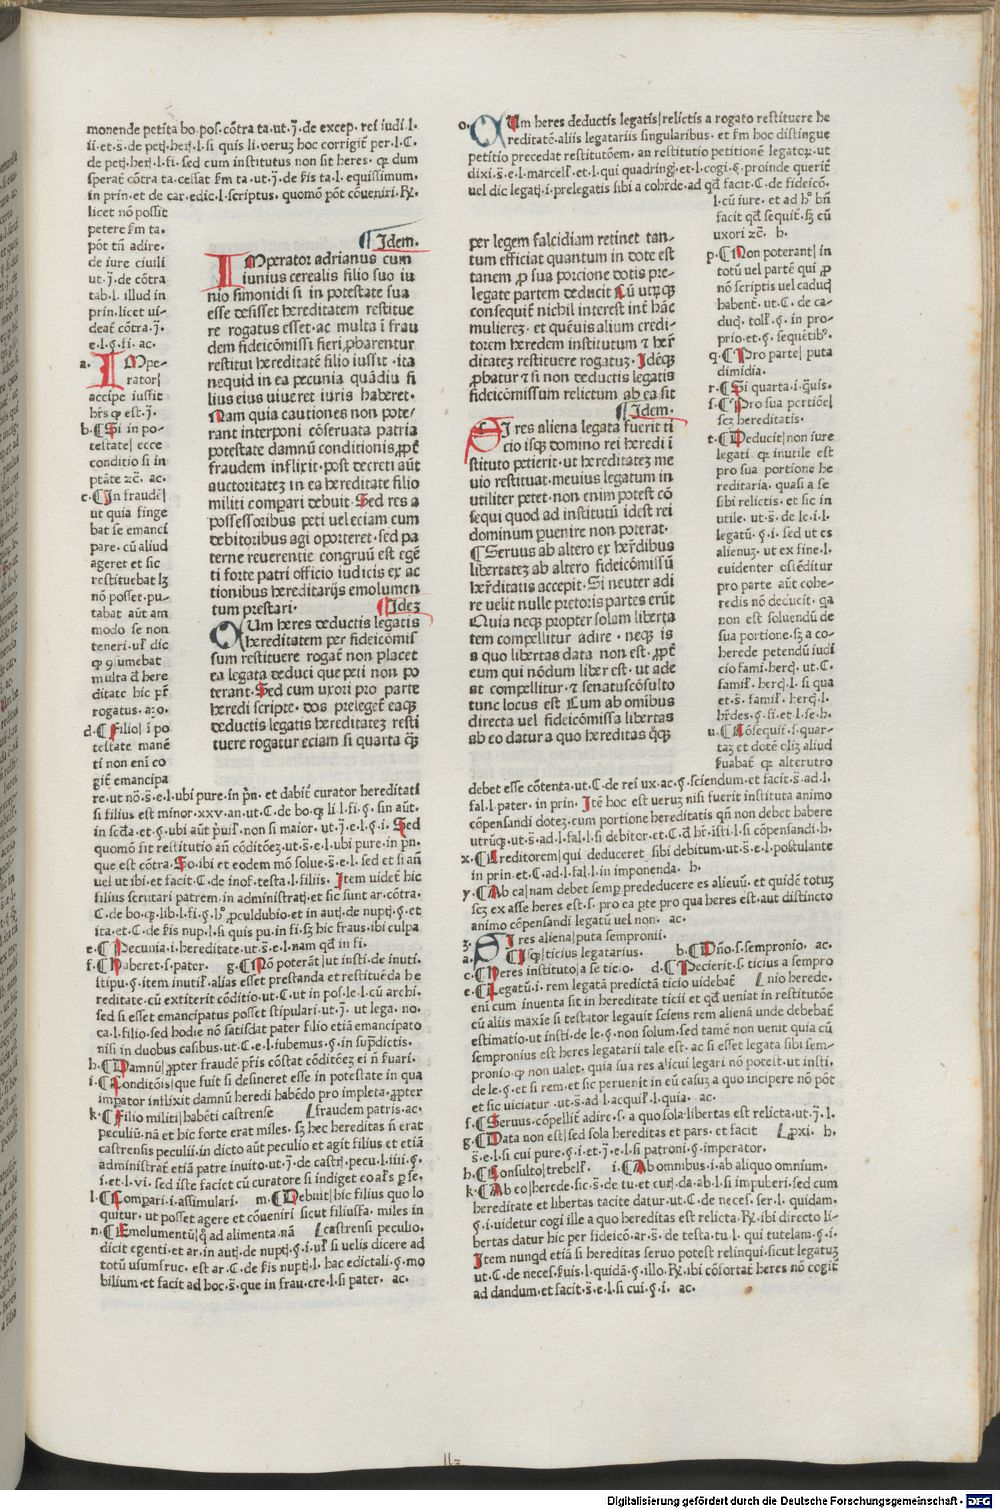 monende petita bo.pos.cõtra ta.ut.ȷ̃.de excep. rei iudi.l.
ii.et.s̃.de peti.her.l.si quis li.veruȝ hoc corrigit̃ per.l.C.
de petj.herj.l.fi. sed cum institutus non sit heres. qꝛ dum
sperat̃ cõtra ta.cessat fm ta.ut.ȷ̃.de fis ta.l.equissimum.
in prin.et de car.edic.l.scriptus. quomõ põt cõueniri.
licet nõ possit
petere fm ta.
põt tñ adire.
de iure ciuili
ut.ȷ̃.de cõtra
tab.l. illud in
prin.licet ui-
deat̃ cõtra.ȷ̃.
e.l.§.fi. ac.
a. IMpe-
rator|
accipe iussit
b.¶Si in po-
testate| ecce
conditio si in
ptãte ⁊c̃. ac.
c.¶In fraudẽ|
ut quia finge
bat se emanci
pare. cũ aliud
ageret et sic
restituebat lȝ
nõ posset.pu-
tabat aũt am
modo se non
teneri.
multa d̃ here
ditate hic
rogatus. aȝo.
d.¶Filio| i po
testate manẽ
ti non eni co
git̃ emancipa
re.ut nõ.s̃.e.l.ubi pure.in p̃n. et dabit̃ curator hereditati
si filius est minor.xxv.an.ut.C.de bo.q̃ li.l.fi.§.sin aũt.
non si maior. ut.ȷ̃.e.l.§.i. Sed
quomõ fit restitutio añ cõditõeȝ.ut.s̃.e.l.ubi pure.in p̃n.
que est cõtra.So.ibi et eodem mõ solue.s̃.e.l. sed et si añ
uel ut ibi.et facit.C.de inof.testa.l.filiis. Item uidet̃ hic
filius scrutari patrem.in administratj.et sic sunt ar.cõtra.
ita.et.C.de fis nup.l.si quis pu.in fi.sȝ hic fraus.ibi culpa
e.¶Pecunia.i.hereditate.ut.s̃.e.l.nam qd̃ in fi.
f.¶Haberet.s.pater. g.¶Nõ poterãt|ut insti.de inuti.
stipu.§.item inutil̃.alias esset prestanda et restituẽda he
reditate cũ extiterit cõditio.ut.C.ut in pos.le.l.cũ archi.
sed si esset emancipatus posset stipulari.ut.ȷ̃. ut lega. no.
ca.l.filio.sed hodie nõ satisdat pater filio etiã emancipato
nisi in duobus casibus.ut.C.e.l.iubemus.§.in sup̃dictis.
h.¶Damnũ|ꝓpter fraudẽ p̃ris cõstat cõditõeȝ ei ñ
i.¶Conditõis|que fuit si desineret esse in potestate in qua
impator inflixit damnũ heredi habẽdo pro impleta.ꝓpter
k.¶Filio militi|habẽti castrense fraudem patris.ac.
peculiũ.nã et hic forte erat miles. sȝ hec hereditas ñ erat
castrensis peculii.in dicto aũt peculio et agit filius et etiã
administrat̃ etiã patre inuito.ut.ȷ̃.de castrj.pecu.l.iiii.§.
i.et.l.vi. sed iste faciet cũ curatore si indiget
l.¶Compari.i.assimulari. m.¶Debuit|hic filius quo lo
quitur. ut posset agere et cõueniri sicut filiusfa. miles in
n.¶Emolumentũ| ad alimenta.nã castrensi peculio.
dicit egenti.et ar.in autj.de nuptj.§.i. si uelis dicere ad
totũ usumfruc. est ar.C.de fis nuptj.l. hac edictali.§.mo
bilium.et facit ad hoc.s̃.que in frau.cre.l.si pater. ac.
¶Idem.
IMperator adrianus cum
iunius cerealis filio suo iu
nio simonidi si in potestate sua
esse desisset hereditatem restitue
re rogatus esset.ac multa ĩ frau
dem fideicõmissi fieri ꝓbarentur
restitui hereditatẽ filio iussit.ita
nequid in ea pecunia quãdiu fi
lius eius uiueret iuris haberet.
Nam quia cautiones non pote/
rant interponi cõseruata patria
potestate damnũ conditionis.ꝓpt̃
fraudem inflixit.post decreti aũt
auctoritateȝ in ea hereditate filio
militi compari debuit.Sed res a
possessoribus peti uel eciam cum
debitoribus agi oporteret.sed pa
terne reuerentie congruũ est egẽ
ti forte patri officio iudicis ex ac
tionibus hereditarijs emolumen
tum prestari. ¶Ideȝ
CUm heres deductis legatis
hereditatem per fideicõmis
sum restituere rogat̃ non placet
ea legata deduci que peti non po
terant.Sed cum uxori pro parte
heredi scripte. dos prelegeret̃ eaqȝ
deductis legatis hereditateȝ resti
tuere rogatur eciam si quarta q̃ȝ
o. CUm heres deductis legatis|relictis a rogato restituere he
reditatẽ.aliis legatariis singularibus. et fm hoc distingue
petitio precedat restitutõem. an restitutio petitionẽ legatoꝝ.ut
dixi.s̃.e.l.marcell̃.et.l.qui quadringj.et.l.cogi.§.proinde querit̃
uel dic legatj.i.prelegatis sibi a cohr̃de.ad qd̃ facit.C.de fideicõ.
l.cũ iure. et ad
facit qd̃ sequit̃.sȝ cũ
uxori ⁊c̃. h.
p.¶Non poterant| in
totũ uel partẽ qui ꝓ
nõ scriptis uel caduqȝ
habent̃.ut.C.de ca-
duqj. toll̃.§. in pro-
prio.et.§. sequẽtibȝ.
q.¶Pro parte| puta
dimidia.
r.¶Si quarta.i.q̃uis.
s.¶Pro sua portiõe|
scȝ hereditatis.
t.¶Deducit|non iure
legati qꝛ inutile est
pro sua portione he
reditaria. quasi a se
sibi relictis.et sic in
utile.ut.s̃.de le.i.l.
legatũ.§.i. sed ut es
alienuȝ. ut ex fine.l.
euidenter ostẽditur
pro parte aũt cohe-
redis nõ deducit. qa
non est soluendũ de
sua portione.sȝ a co-
herede petendũ iudi
cio fami.hercj.ut.C.
famil̃. hercj.l. si qua
et.s̃. famil̃. hercj.l.
hr̃des.§.fi.et.l.se.h.
u.¶Cõsequit̃.s.quar-
taȝ et dotẽ olȝ aliud
fuabat̃ qꝛ alterutro
per legem falcidiam retinet tan-
tum efficiat quantum in dote est
tanem ꝓ sua porcione dotis pre-
legate partem deducit Cũ utrũqȝ
consequit̃ nichil interest int̃ hãc
mulierez. et quẽuis alium credi-
torem heredem institutum ⁊ her̃
ditateȝ restituere rogatuȝ. Ideqȝ
ꝓbatur ⁊ si non deductis legatis
fideicõmissum relictum ab ea sit
¶Idem.
SI res aliena legata fuerit ti
cio isqȝ domino rei heredi ĩ
stituto petierit.ut hereditateȝ me
uio restituat.meuius legatum in
utiliter petet.non enim potest cõ
sequi quod ad institutũ idest rei
dominum puenire non poterat.
¶Seruus ab altero ex her̃dibus
libertateȝ ab altero fideicõmissũ
her̃ditatis accepit. Si neuter adi
re uelit nulle pretoris partes erũt
Quia neqȝ propter solam liberta
tem compellitur adire. neqȝ is
a quo libertas data non est. ꝓpt̃
eum qui nõdum liber est.ut ade
at compellitur.⁊ senatuscõsulto
tunc locus est Cum ab omibus
directa uel fideicõmissa libertas
ab eo datur a quo hereditas q̃qȝ
debet esse cõtenta.ut.C.de rei ux.ac.§.sciendum.et facit.s̃.ad.l.
fal.l.pater. in prin. Itẽ hoc est veruȝ nisi fuerit instituta animo
cõpensandi doteȝ.cum portione hereditatis qñ non debet habere
utrũqȝ.ut.s̃.ad.l.fal.l.si debitor.et.C.d̃ hr̃.isti.l.si cõpensandi.h.
x.¶Creditorem|qui deduceret sibi debitum.ut.s̃.e.l.postulante
in prin.et.C.ad.l.fal.l.in imponenda. h.
y.¶Ab ea|nam debet semp prededucere es alieuũ.et quidẽ totuȝ
scȝ ex asse heres est.s. pro ea pte pro qua heres est.aut distincto
animo cõpensandi legatũ uel non. ac.
ȝ. SI res aliena|puta sempronii.
a. ¶Isqȝ|ticius legatarius. b.¶Dño.s.sempronio. ac.
c.¶Heres instituto|a se ticio. d.¶Pecierit.s.ticius a sempro
e.¶Legatũ.i.rem legatã predictã ticio uidebat̃ nio herede.
eni cum inuenta sit in hereditate ticii et qd̃ veniat in restitutõe
cũ aliis maxie si testator legauit sciens rem alienã unde debebat̃
estimatio.ut insti.de le.§.non solum.sed tamẽ non uenit quia cũ
sempronius est heres legatarii tale est. ac si esset legata sibi sem-
pronio.ꝙ non ualet.quia sua res alicui legari nõ potest.ut insti.
de le.§.et si rem.et sic peruenit in eũ casuȝ a quo incipere nõ põt
et sic uiciatur.ut.s̃.ad.l.acquil̃.l.quia. ac.
f.¶Seruus.cõpellit̃ adire.s.a quo sola libertas est relicta.ut.ȷ̃.l.
g.¶Data non est|sed sola hereditas et pars.et facit ꝓxi. h.
s̃.e.l.si cui pure.§.i.et.ȷ̃.e.l.si patroni.§.imperator.
h.¶Consulto|trebell̃. i.¶Ab omnibus.i.ab aliquo omnium.
k.¶Ab eo|herede.sic.s̃.de tu.et curj.da.ab.l.si impuberi.sed cum
hereditate et libertas tacite datur.ut.C.de neces.ser.l. quidam.
§.i.uidetur cogi ille a quo hereditas est relicta. ibi directo li-
bertas datur hic per fideicõ.ar.s̃.de testa.tu.l. qui tutelam.§.i.
Item nunqd etiã si hereditas seruo potest relinqui.sicut legatuȝ
ut.C.de neces.fuis.l.quidã.§.illo. ibi cõfortat̃ heres nõ cogit̃
ad dandum.et facit.s̃.e.l.si cui.§.i. ac.
Digitalisierung gefördert durch die Deutsche Forschungsgemeinschaft - DFG